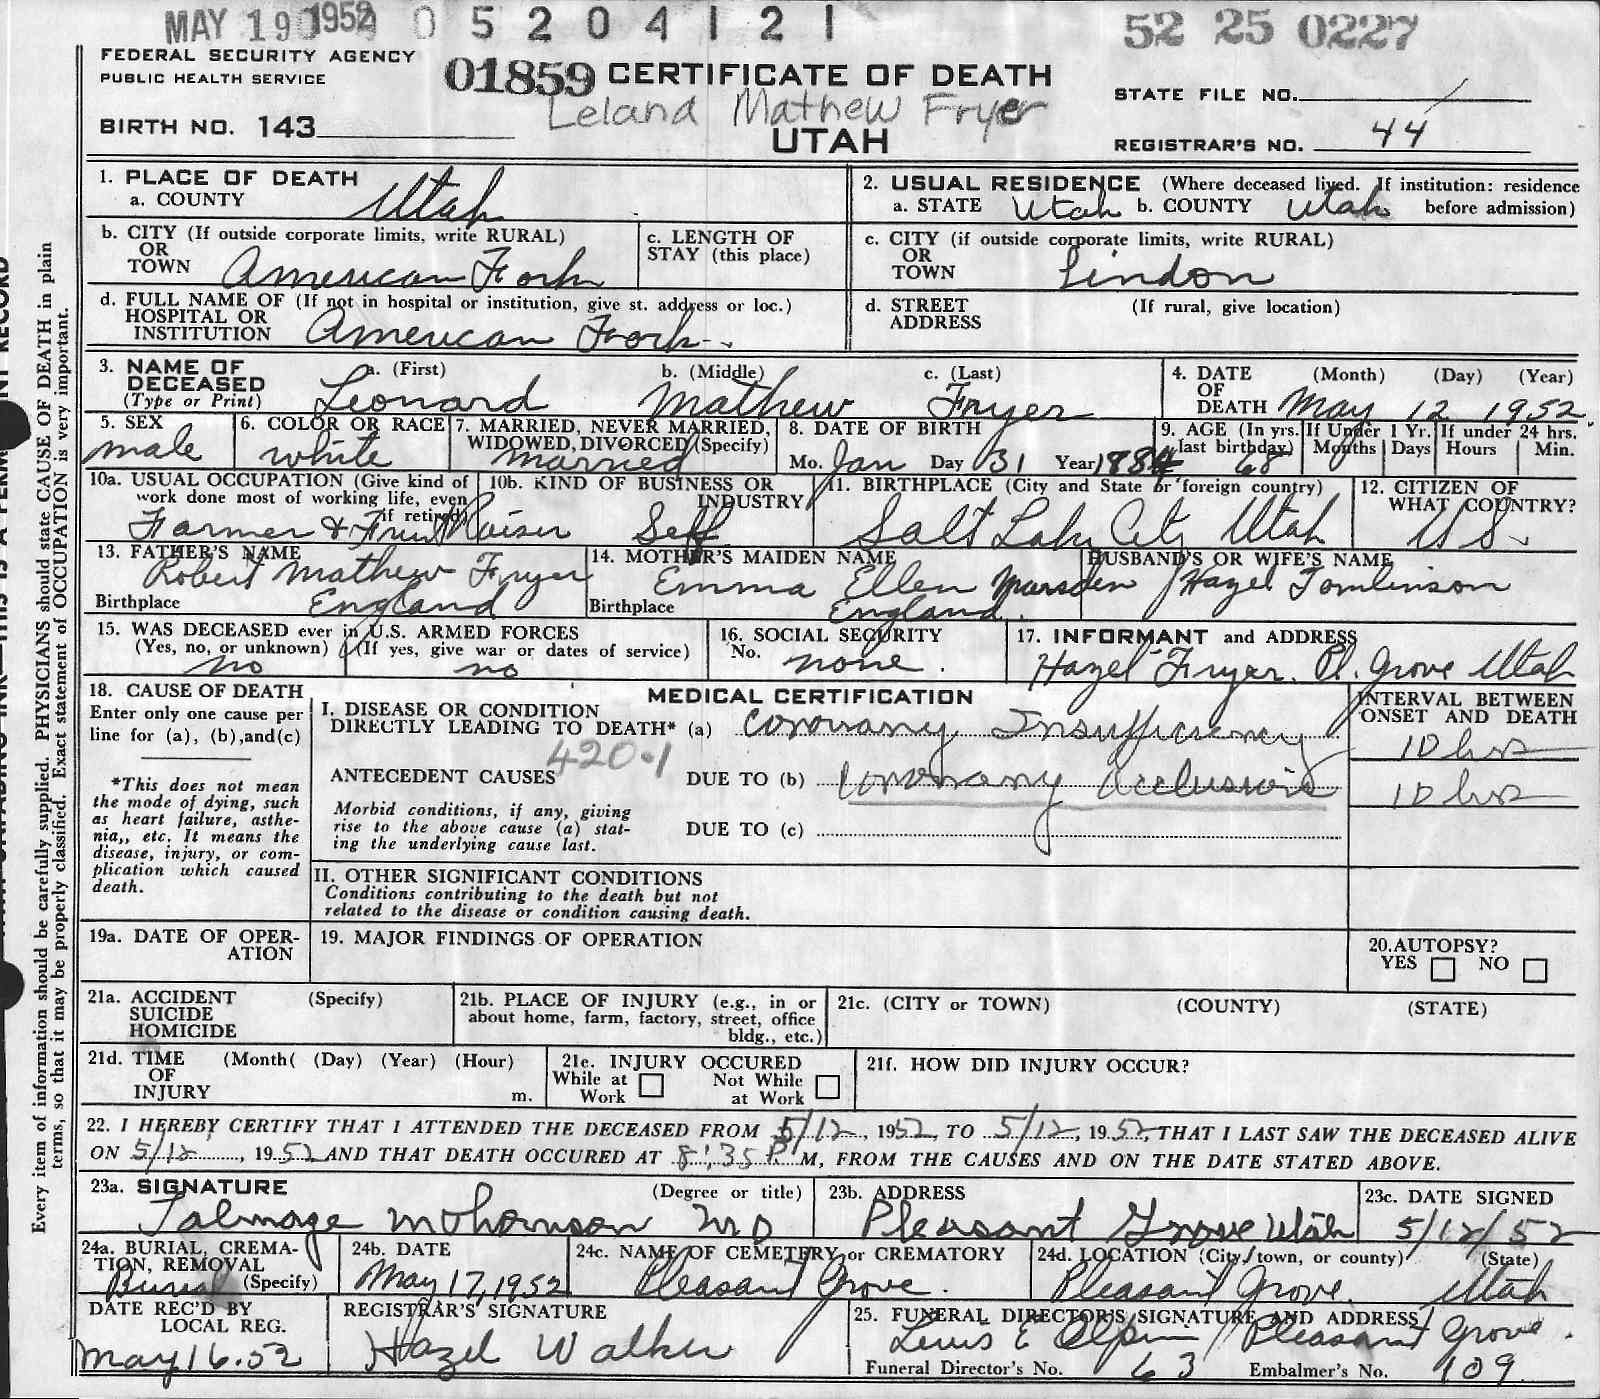 MAY 19 1952 0 5 2 0 4 1 2 1 52 25 0227
FEDERAL SECURITY AGENCY
PUBLIC HEALTH SERVICE
01859 CERTIFICATE OF DEATH
STATE FILE NO.
Leland Mathew Fryer
BIRTH NO. 143
UTAH
REGISTRAR'S NO. 44
1. PLACE OF DEATH
a. COUNTY Utah
2. USUAL RESIDENCE (Where deceased lived. If institution: residence
a. STATE Utah b. COUNTY Utah before admission)
b. CITY (If outside corporate limits, write RURAL)
OR
TOWN American Fork
c. LENGTH OF
STAY (this place)
c. CITY (if outside corporate limits, write RURAL)
OR
TOWN Lindon
d. FULL NAME OF (If not in hospital or institution, give st. address or loc.)
HOSPITAL OR
INSTITUTION American Fork
d. STREET (If rural, give location)
ADDRESS
3. NAME OF a. (First) b. (Middle) c. (Last)
DECEASED
(Type or Print) Leonard Mathew Fryer
4. DATE (Month) (Day) (Year)
OF
DEATH May 12 1952
5. SEX
male
6. COLOR OR RACE
white
7. MARRIED, NEVER MARRIED,
WIDOWED, DIVORCED (Specify)
married
8. DATE OF BIRTH
Mo. Jan Day 31 Year 1884
9. AGE (In yrs. If Under 1 Yr. If under 24 hrs.
last birthday) 68 Months Days Hours Min.
10a. USUAL OCCUPATION (Give kind of
work done most of working life, even
if retired)
Farmer & Fruit Raiser
10b. KIND OF BUSINESS OR
INDUSTRY
Self
11. BIRTHPLACE (City and State or foreign country)
Salt Lake City Utah
12. CITIZEN OF
WHAT COUNTRY?
U S
13. FATHER'S NAME
Robert Mathew Fryer
Birthplace England
14. MOTHER'S MAIDEN NAME
Emma Ellen Marsden
Birthplace England
HUSBAND'S OR WIFE'S NAME
Hazel Tomlinson
15. WAS DECEASED ever in U.S. ARMED FORCES
(Yes, no, or unknown) (If yes, give war or dates of service)
no no
16. SOCIAL SECURITY
No. none.
17. INFORMANT and ADDRESS
Hazel Fryer. Pl. Grove Utah
18. CAUSE OF DEATH
Enter only one cause per
line for (a), (b),and(c)
*This does not mean
the mode of dying, such
as heart failure, asthe-
nia,, etc. It means the
disease, injury, or com-
plication which caused
death.
MEDICAL CERTIFICATION
I. DISEASE OR CONDITION
DIRECTLY LEADING TO DEATH* (a) Coronary Insufficiency
420.1
ANTECEDENT CAUSES DUE TO (b) Coronary Occlusion
Morbid conditions, if any, giving
rise to the above cause (a) stat-
ing the underlying cause last.
DUE TO (c)
INTERVAL BETWEEN
ONSET AND DEATH
10 hrs
10 hrs
II. OTHER SIGNIFICANT CONDITIONS
Conditions contributing to the death but not
related to the disease or condition causing death.
19a. DATE OF OPER-
ATION
19. MAJOR FINDINGS OF OPERATION
20. AUTOPSY?
YES NO
21a. ACCIDENT (Specify)
SUICIDE
HOMICIDE
21b. PLACE OF INJURY (e.g., in or
about home, farm, factory, street, office
bldg., etc.)
21c. (CITY or TOWN) (COUNTY) (STATE)
21d. TIME (Month( (Day) (Year) (Hour)
OF
INJURY m.
21e. INJURY OCCURED
While at Not While
Work at Work
21f. HOW DID INJURY OCCUR?
22. I HEREBY CERTIFY THAT I ATTENDED THE DECEASED FROM 5/12, 1952, TO 5/12, 1952, THAT I LAST SAW THE DECEASED ALIVE
ON 5/12, 1952 AND THAT DEATH OCCURED AT 8:35 P. M, FROM THE CAUSES AND ON THE DATE STATED ABOVE.
23a. SIGNATURE (Degree or title)
Talmage McThomson MD
23b. ADDRESS
Pleasant Grove Utah
23c. DATE SIGNED
5/12/52
24a. BURIAL, CREMA-
TION, REMOVAL
Burial (Specify)
24b. DATE
May 17, 1952
24c. NAME OF CEMETERY or CREMATORY
Pleasant Grove.
24d. LOCATION (City, town, or county) (State)
Pleasant Grove. Utah
DATE REC'D BY
LOCAL REG.
May 16.52
REGISTRAR'S SIGNATURE
Hazel Walker
25. FUNERAL DIRECTOR'S SIGNATURE AND ADDRESS
Lewis E Olpin Pleasant Grove.
Funeral Director's No. 63 Embalmer's No. 109
Every item of information should be carefully supplied. PHYSICIANS should state CAUSE OF DEATH in plain
terms, so that it may be properly classified. Exact statement of OCCUPATION is very important.